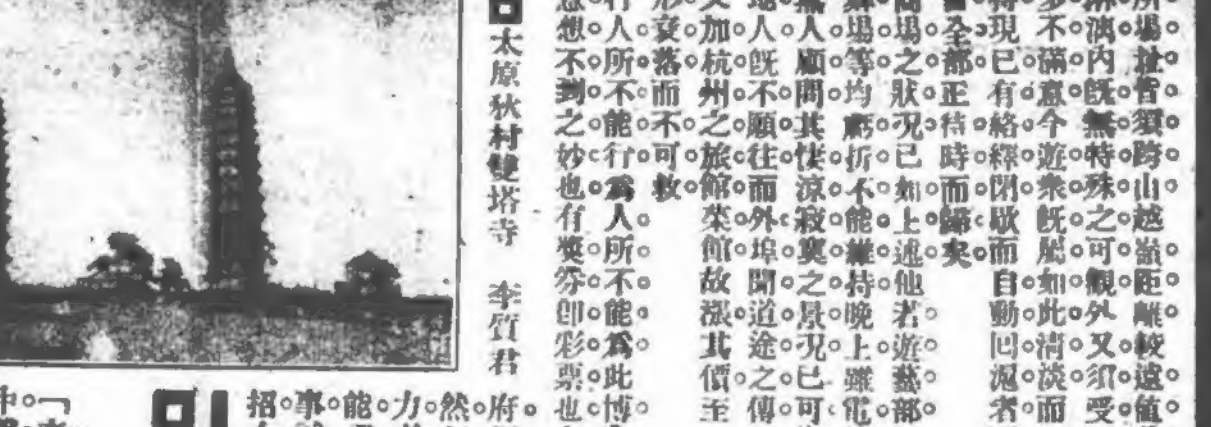 所場址皆須跨山越嶺距離較遠値
淋漓内既無特殊之可觀外又須受
多不滿意今遊衆既屬如此清淡而
特現已有絡繹閉歇而自動回滬者
全部正待時而歸矣
商場之狀况已如上述他若遊藝部
場等均虧折不能維持晚上雖電
無人顧問其悽涼寂寞之景况已可
地人既不願往而外埠聞道途之傳
又加杭州之旅館菜館故漲其價至
形衰落而不可救
行人所不能行爲人所不能爲此博
意想不到之妙也有奬券卽彩票也
太原狄村雙塔寺 李質君
府
然
力
能
事
招